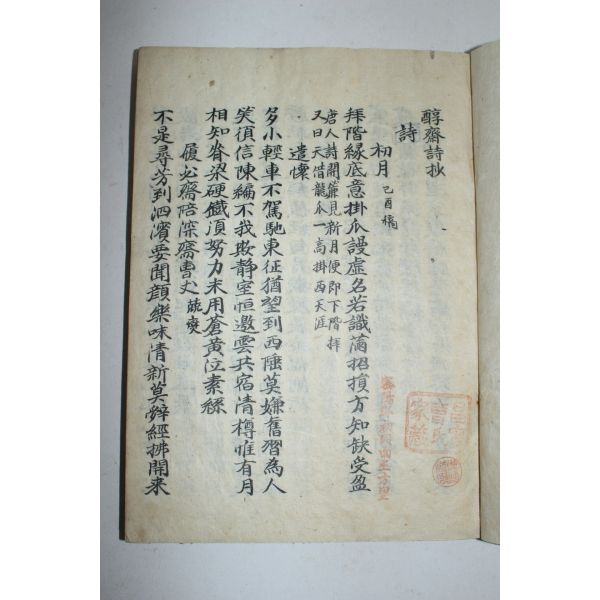 醇齋詩抄
詩
初月 己酉稿
拜階緣底意掛瓜謾虛名若識滿招損方知缺受盈
唐人詩開簾見新月便即下階拜
又曰天借龍爪一高掛西天涯
遣懷
多小輕車不駕馳東征猶望到西陲莫嫌舊習為人
笑須信陳編不我欺靜室恒邀雲共宿清樽惟有月
相知脊梁硬鐵須努力未用蒼黃泣素絲
履必齋陪深齋曹丈
不是尋芳到泗濱要聞顏樂味清新莫辭經拂開來